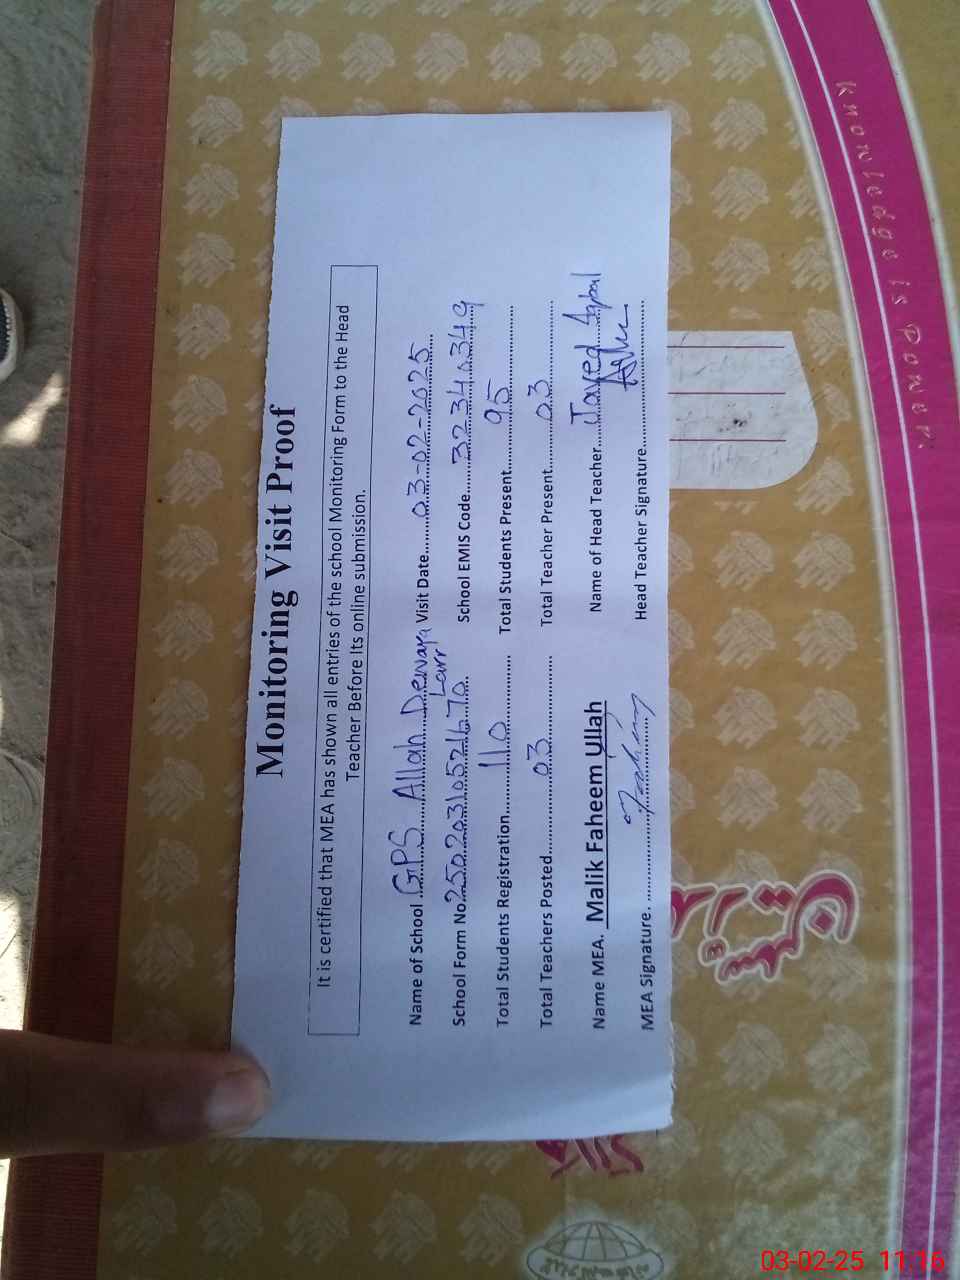 Monitoring Visit Proof
It is certified that MEA has shown all entries of the school Monitoring Form to the Head
Teacher Before Its online submission.
Name of School GPS Allah Dewaya Larr Visit Date 03-02-2025
School Form No. 25020310521670 School EMIS Code 32340349
Total Students Registration 110 Total Students Present 95
Total Teachers Posted 03 Total Teacher Present 03
Name MEA. Malik Faheem Ullah Name of Head Teacher Javed Iqbal
MEA Signature. Head Teacher Signature
Knowledge is Power
03-02-25 11:16